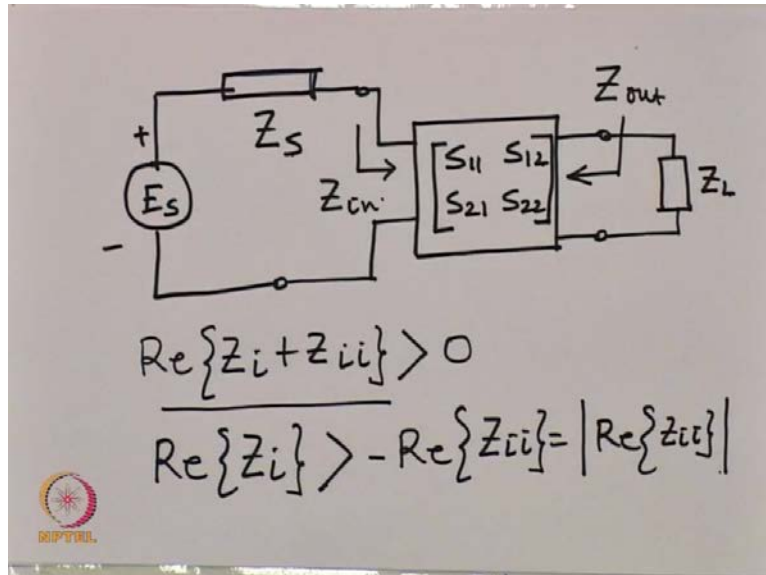 Z_S
Z_in.
E_S
+
-
[S_11 S_12
S_21 S_22]
Z_out
Z_L
Re{Z_i + Z_ii} > 0
Re{Z_i} > - Re{Z_ii} = |Re{Z_ii}|
NPTEL